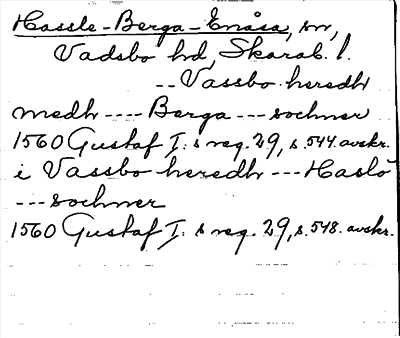 Hassle-Berga-Enåsa, sn,
Vadsbo hd, Skarab. l.
-- Vassbo heredh
medh ---- Berga --- sochner
1560 Gustaf I:s reg. 29, s. 544. avskr.
i Vassbo heredh --- Haslö
--- sochner
1560 Gustaf I:s reg. 29, s. 548. avskr.